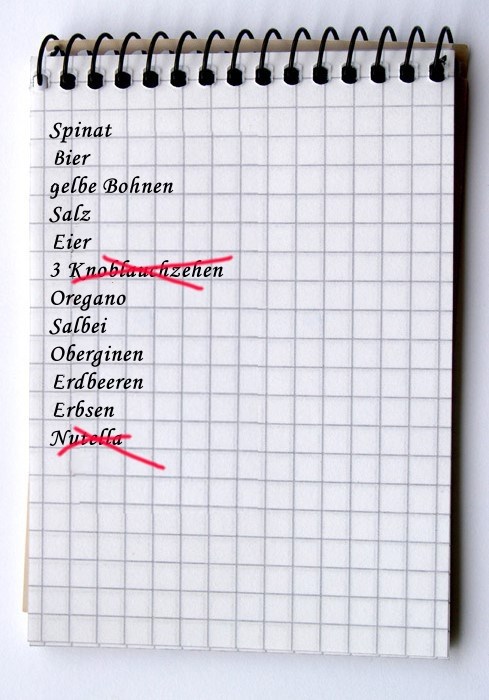 Spinat
Bier
gelbe Bohnen
Salz
Eier
3 Knoblauchzehen
Oregano
Salbei
Oberginen
Erdbeeren
Erbsen
Nutella